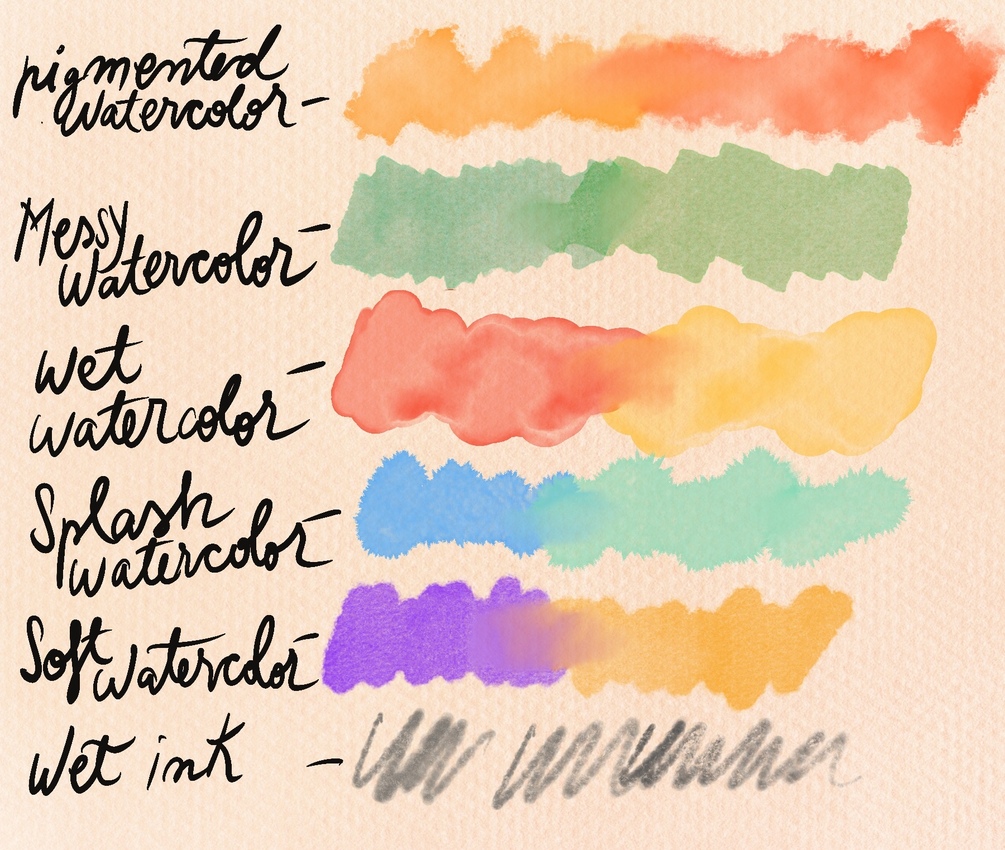 pigmented
Watercolor-
Messy
Watercolor-
Wet
watercolor-
Splash
watercolor-
Soft
Watercolor-
Wet ink -